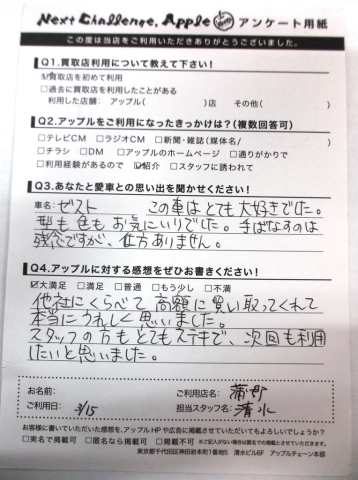 Next Challenge, Apple アンケート用紙
この度は当店をご利用いただきありがとうございました。
Q1.買取店利用について教えて下さい!
☑買取店を初めて利用
□過去に買取店を利用したことがある
利用した店舗: アップル( )店 その他( )
Q2.アップルをご利用になったきっかけは?(複数回答可)
□テレビCM □ラジオCM □新聞・雑誌(媒体名/ )
□チラシ □DM □アップルのホームページ □通りがかりで
□利用経験があるので ☑紹介 □スタッフに誘われて
Q3.あなたと愛車との思い出を聞かせください!
車名: ゼスト この車はとても大好きでした。
型も色もお気にいりでした。手ばなすのは
残念ですが、仕方ありません。
Q4.アップルに対する感想をぜひお書きください!
☑大満足 □満足 □普通 □もう少し □不満
他社にくらべて高額に買い取ってくれて
本当にうれしく思いました。
スタッフの方もとてもステキで、次回も利用
したいと思いました。
お名前: ご利用店名: 蒲郡
ご利用日: 3/15 担当スタッフ名: 清水
お客様に書いていただいた感想を、アップルHPや広告に掲載させていただいてもよろしいでしょうか?
□実名で掲載可 □匿名なら掲載可 □掲載不可 ※ご記入がない場合は匿名での掲載とさせていただきます。
東京都千代田区神田岩本町1番地5 清水ビル6F アップルチェーン本部